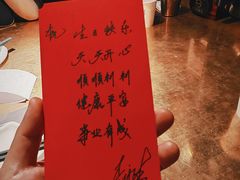 祝 生日快乐
天天开心
顺顺利利
健康平安
事业有成